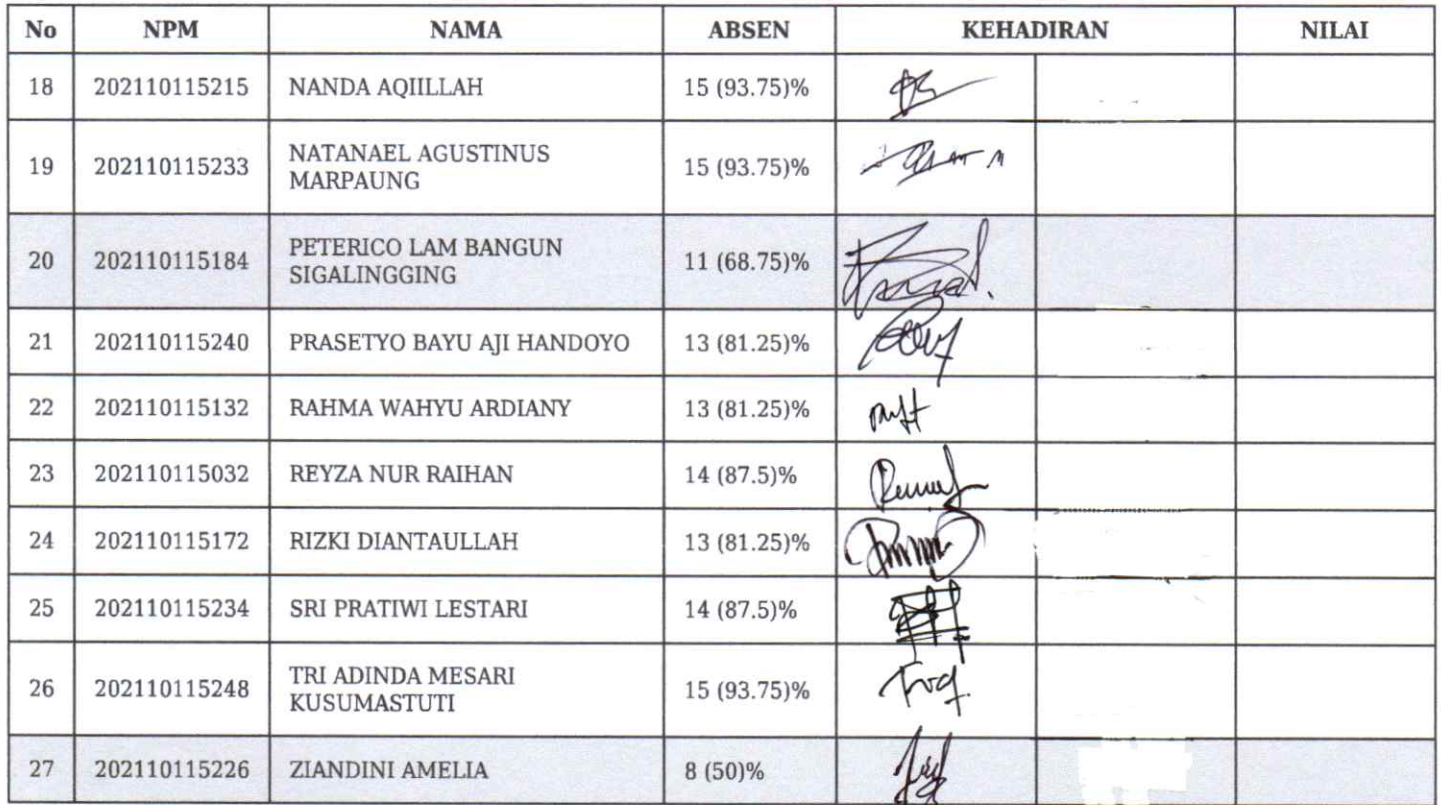 No NPM NAMA ABSEN KEHADIRAN NILAI
18 202110115215 NANDA AQIILLAH 15 (93.75)%
19 202110115233 NATANAEL AGUSTINUS
MARPAUNG 15 (93.75)%
20 202110115184 PETERICO LAM BANGUN
SIGALINGGING 11 (68.75)%
21 202110115240 PRASETYO BAYU AJI HANDOYO 13 (81.25)%
22 202110115132 RAHMA WAHYU ARDIANY 13 (81.25)%
23 202110115032 REYZA NUR RAIHAN 14 (87.5)%
24 202110115172 RIZKI DIANTAULLAH 13 (81.25)%
25 202110115234 SRI PRATIWI LESTARI 14 (87.5)%
26 202110115248 TRI ADINDA MESARI
KUSUMASTUTI 15 (93.75)%
27 202110115226 ZIANDINI AMELIA 8 (50)%